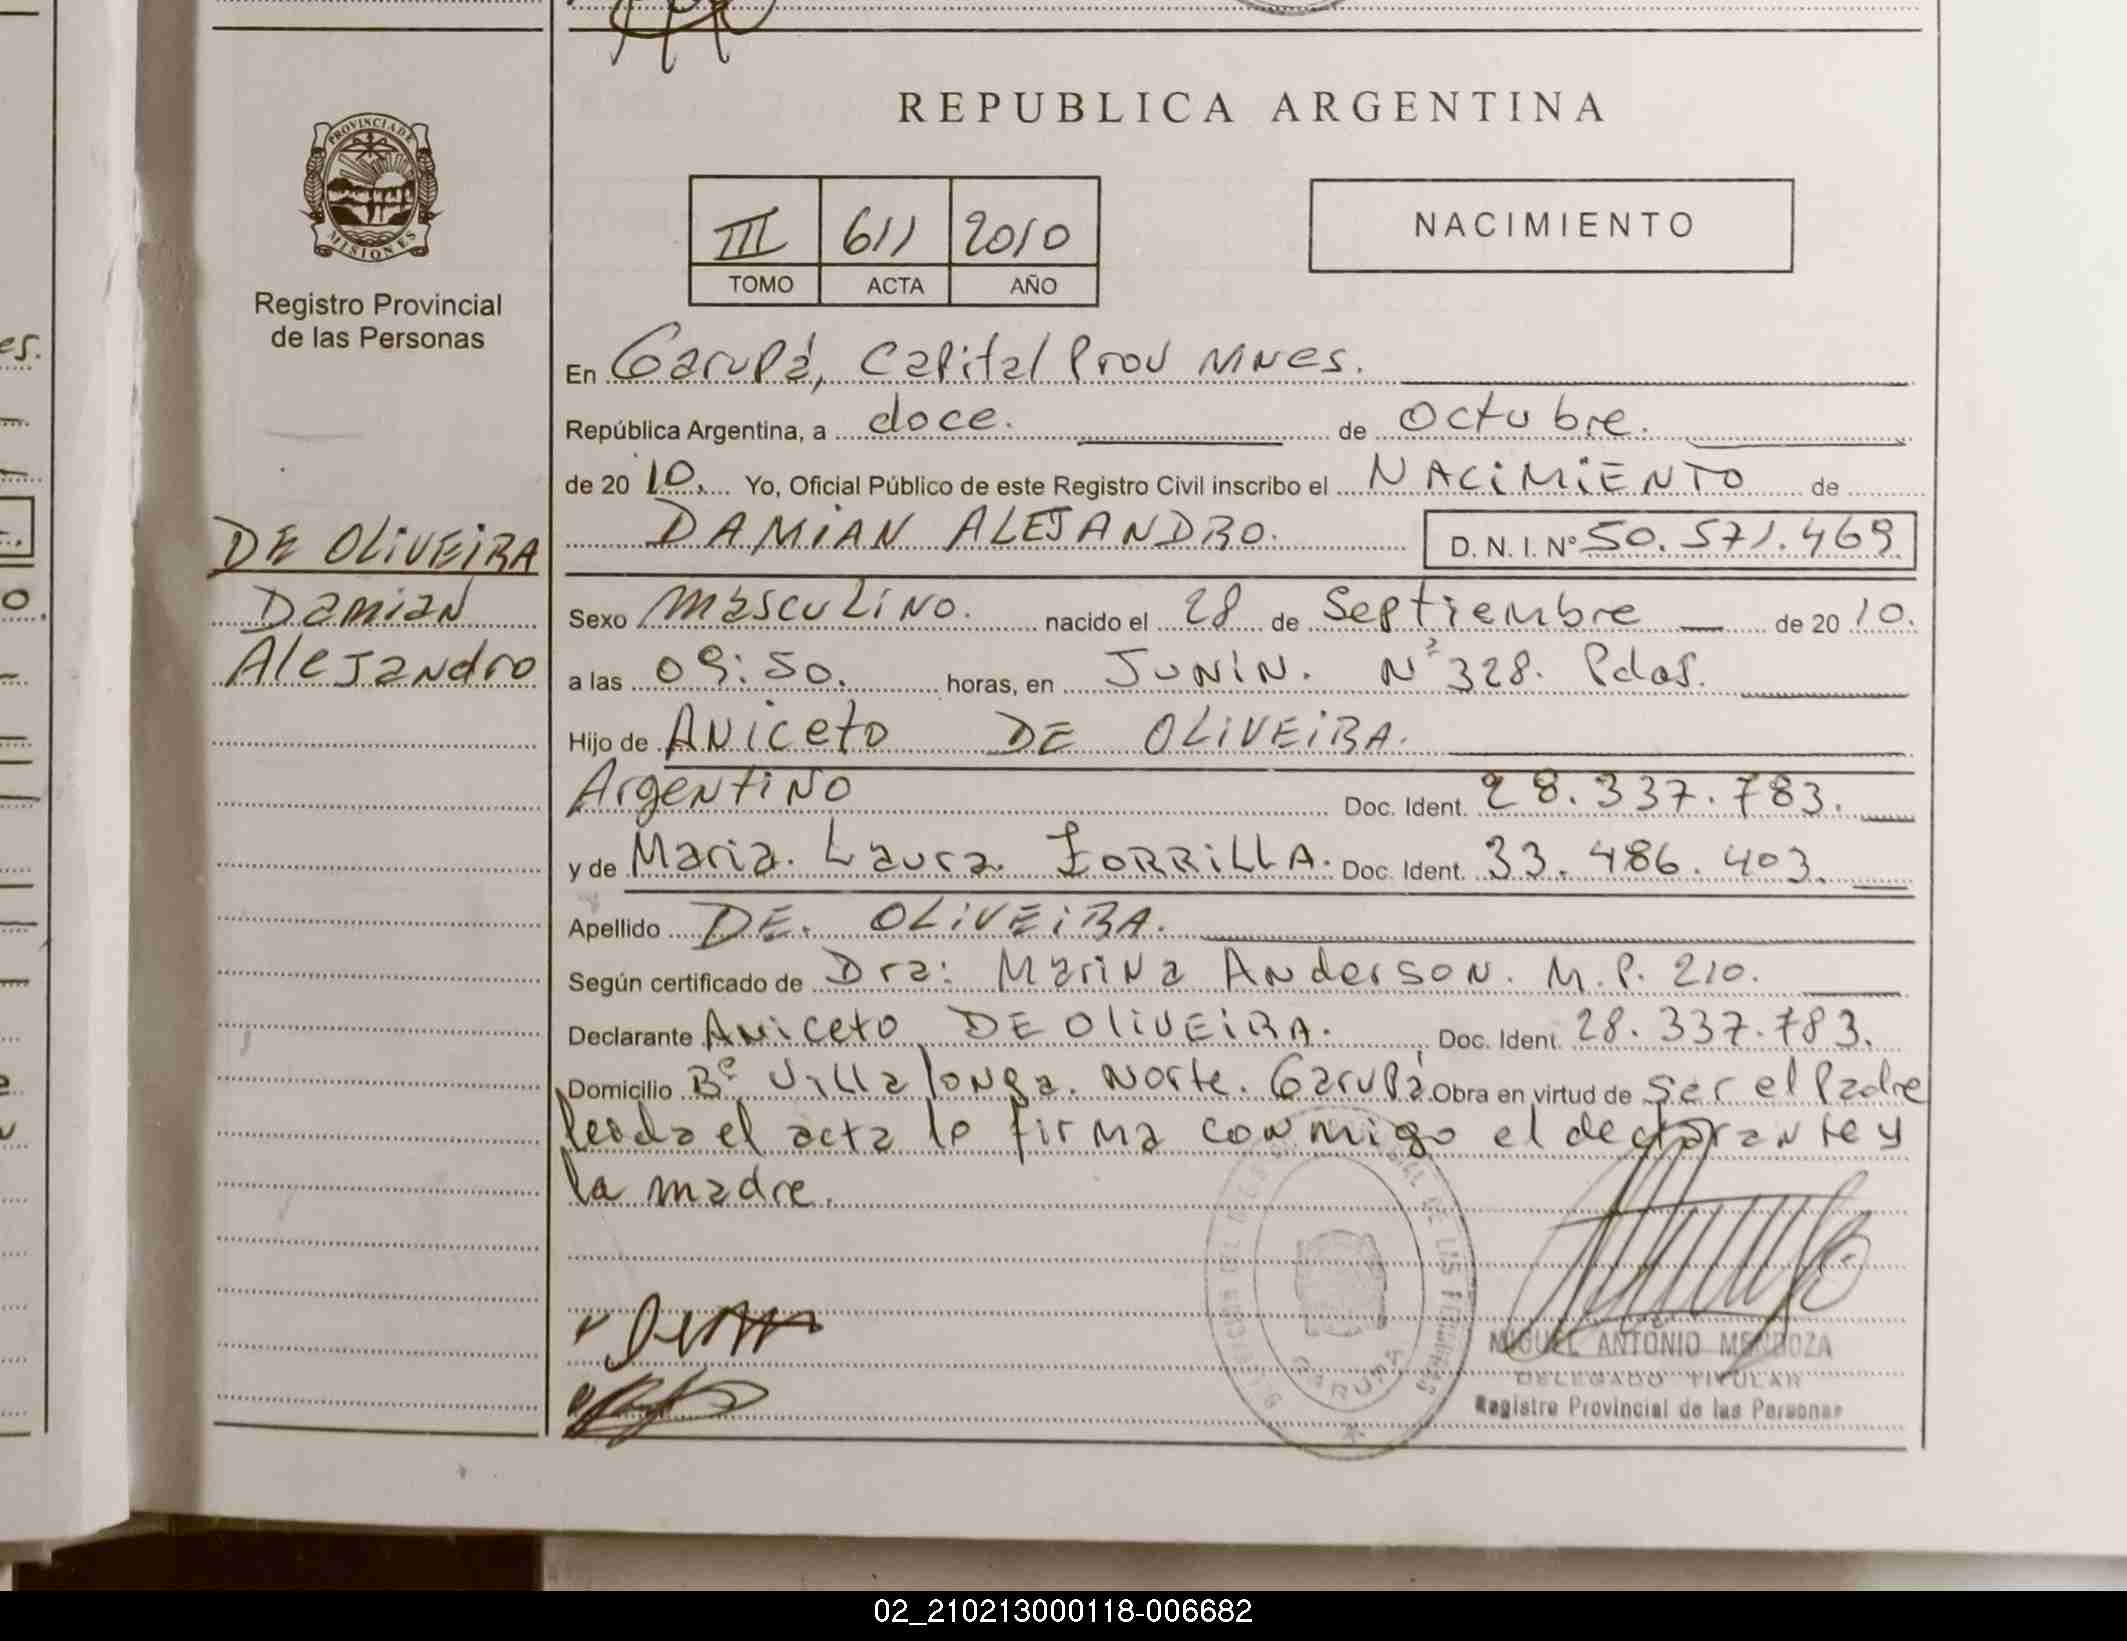 REPUBLICA ARGENTINA
PROVINCIA DE MISIONES
Registro Provincial
de las Personas
III 611 2010
TOMO ACTA AÑO
NACIMIENTO
En Garupá, Capital Prov Mnes.
República Argentina, a doce. de octubre.
de 2010. Yo, Oficial Público de este Registro Civil inscribo el NACIMIENTO de
DAMIAN ALEJANDRO. D.N.I. Nº 50.571.469
DE OLIVEIRA
Damian
Alejandro
Sexo Masculino. nacido el 28 de Septiembre de 2010.
a las 09:50. horas, en JUNIN. Nº 328. Pdas.
Hijo de Aniceto DE OLIVEIRA.
Argentino Doc. Ident. 28.337.783.
y de Maria. Laura. ZORRILLA. Doc. Ident. 33.486.403.
Apellido DE. OLIVEIRA.
Según certificado de Dra: Marina Anderson. M.P. 210.
Declarante Aniceto DE OLIVEIRA. Doc. Ident. 28.337.783.
Domicilio Bº Villa longa. Norte. Garupá Obra en virtud de ser el Padre
leida el acta la firma conmigo el declarante y
la madre.
GARUPA
MIGUEL ANTONIO MENDOZA
DELEGADO TITULAR
Registro Provincial de las Personas
02_210213000118-006682